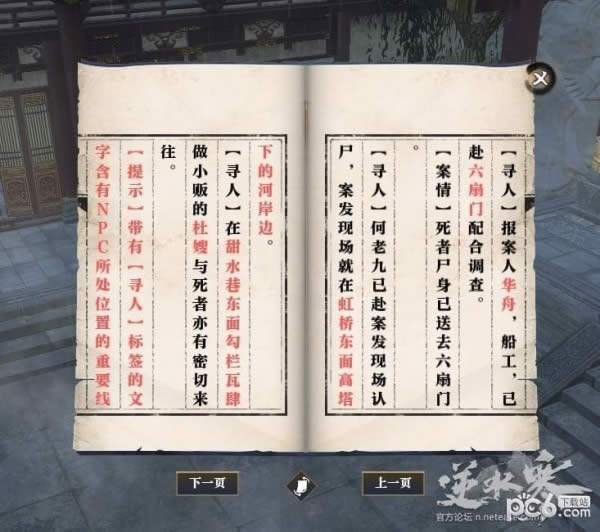 【寻人】报案人华舟，船工，已
赴六扇门配合调查。
【案情】死者尸身已送去六扇门
。
【寻人】何老九已赴案发现场认
尸，案发现场就在虹桥东面高塔
下的河岸边。
【寻人】在甜水巷东面勾栏瓦肆
做小贩的杜嫂与死者亦有密切来
往。
【提示】带有【寻人】标签的文
字含有NPC所处位置的重要线
下一页
上一页
逆水寒
官方论坛 n.netease.com
pc6.com
下载站